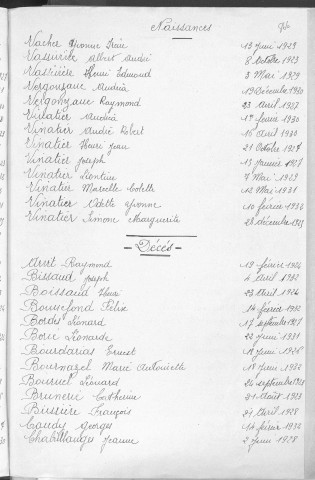 Naissances
Vacher Yvonne 13 Juin 1929
Vassivière Albert André 8 Octobre 1923
Vassivière Henri Edmond 3 Mai 1929
Vergonzane Andréa 19 Décembre 1930
Vergonzane Raymond 23 Avril 1927
Vialatier Andréa 17 février 1930
Vinatier André Robert 16 avril 1930
Vinatier Henri Jean 21 Octobre 1927
Vinatier Joseph 13 Janvier 1927
Vinatier Léontine 7 Mai 1929
Vinatier Marcelle Colette 12 Mai 1931
Vinatier Odette Yvonne 10 février 1932
Vinatier Simone Marguerite 28 décembre
Décès
Arrit Raymond 19 février 1924
Bissaud Joseph 4 Avril 1932
Boissaud Henri 23 Avril 1924
Bonnefond Félix 14 février 1932
Bordas Léonard 17 septembre 1927
Borie Léonarde 22 Juin 1931
Bourdarias Ernest 11 Juin
Bournazel Marie Antoinette 18 Juin 1932
Bournel Léonard 24 septembre 1928
Brunerie Catherine 21 Août 1923
Bussière François 27 Avril 1928
Caudy Georges 14 février 1932
Chabrillanges Jeanne 2 Juin 1928